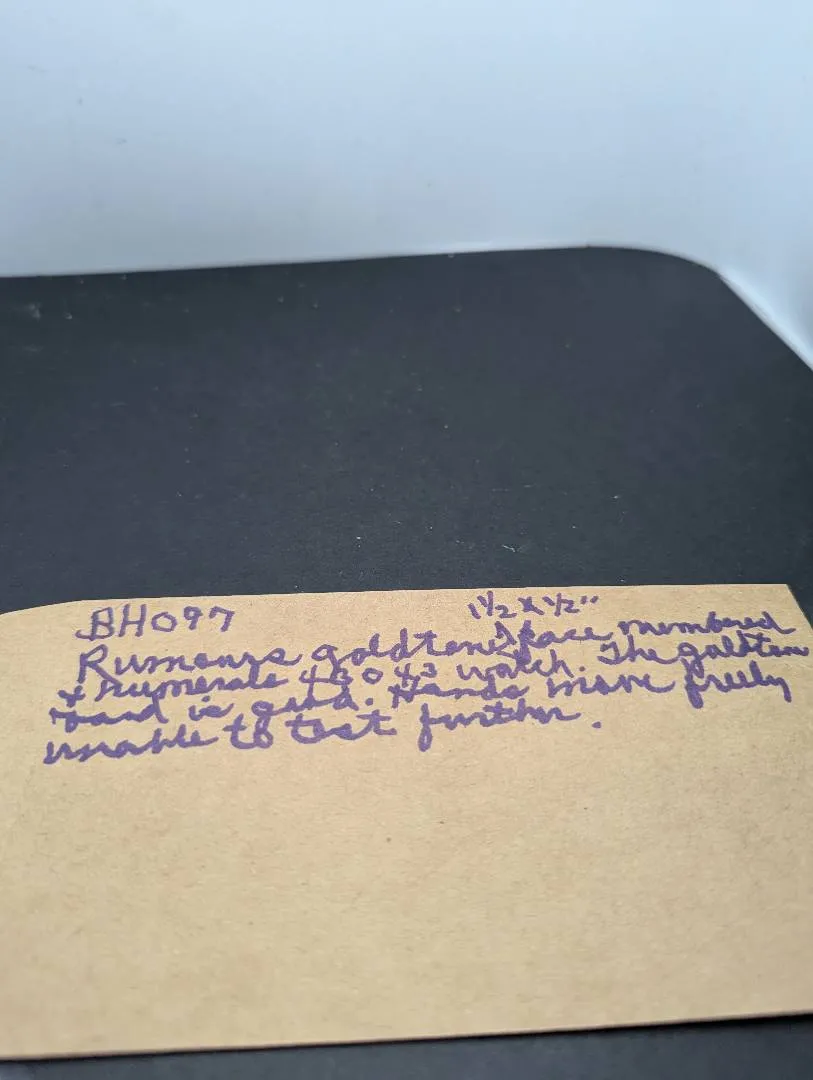 BH097
1 1/2 x 1/2"
Rumours goldtone face numbered
+ numerals watch. The goldtone
band is good. Hands move freely
unable to test further.